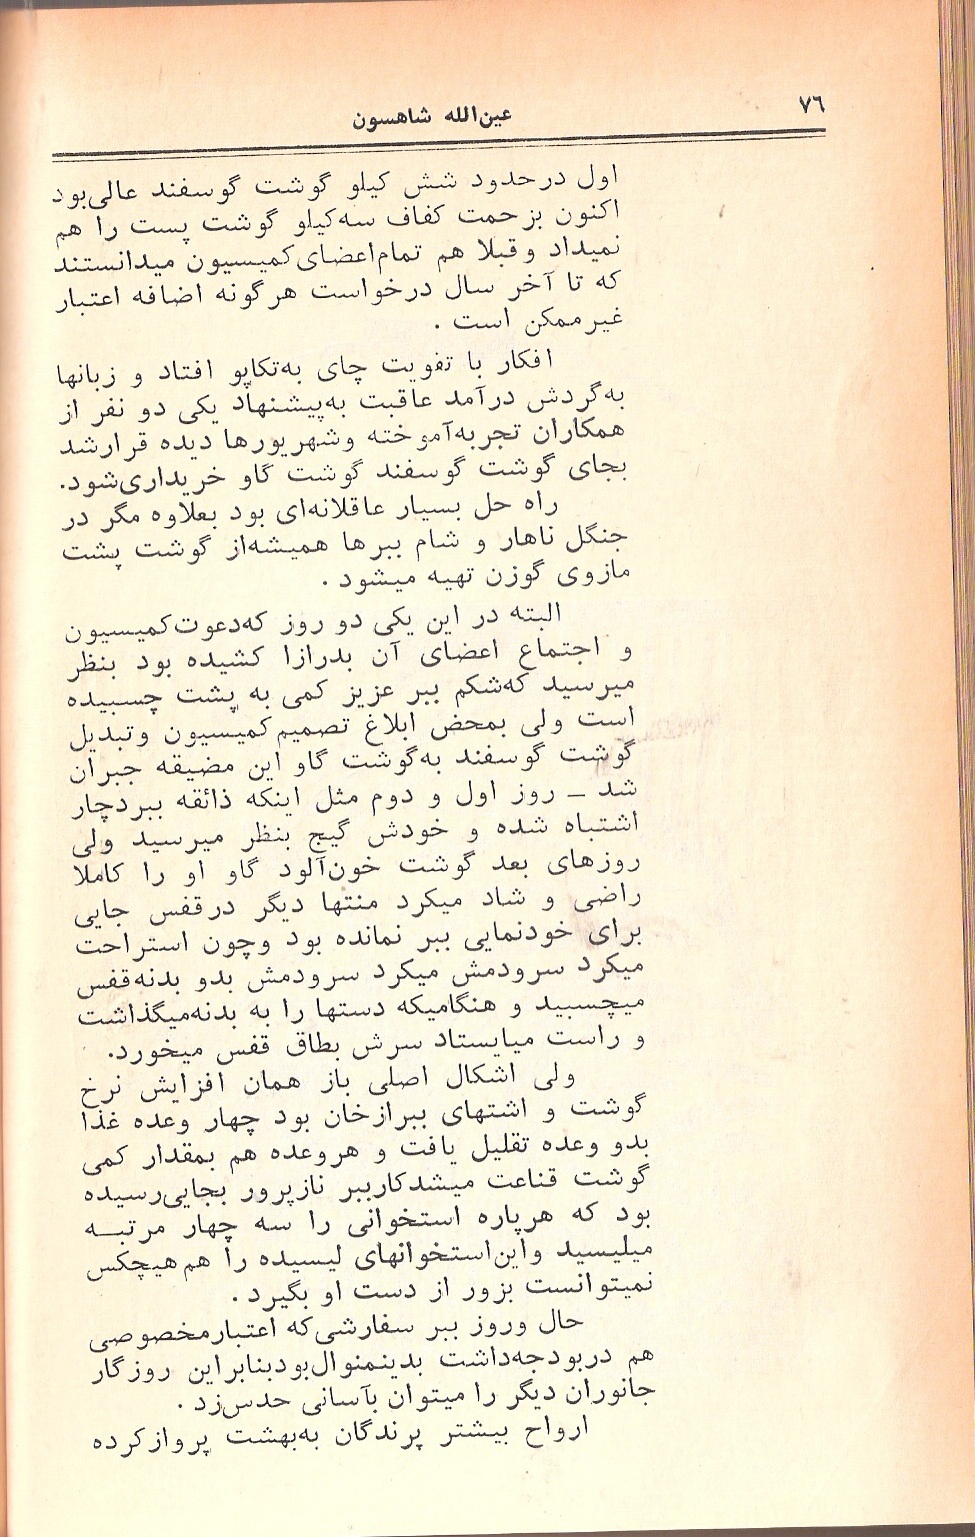 ۷۶
عین‌الله شاهسون
اول درحدود شش کیلو گوشت گوسفند عالی‌بود
اکنون بزحمت کفاف سه‌کیلو گوشت پست را هم
نمیداد و قبلا هم تمام‌اعضای کمیسیون میدانستند
که تا آخر سال درخواست هرگونه اضافه اعتبار
غیرممکن است .
افکار با تفویت چای به‌تکاپو افتاد و زبانها
به‌گردش درآمد عاقبت به‌پیشنهاد یکی دو نفر از
همکاران تجربه‌آموخته وشهریورها دیده قرارشد
بجای گوشت گوسفند گوشت گاو خریداری‌شود.
راه حل بسیار عاقلانه‌ای بود بعلاوه مگر در
جنگل ناهار و شام ببرها همیشه‌از گوشت پشت
مازوی گوزن تهیه میشود .
البته در این یکی دو روز که‌دعوت‌کمیسیون
و اجتماع اعضای آن بدرازا کشیده بود بنظر
میرسید که‌شکم ببر عزیز کمی به پشت چسبیده
است ولی بمحض ابلاغ تصمیم‌کمیسیون وتبدیل
گوشت گوسفند به‌گوشت گاو این مضیقه جبران
شد ـ روز اول و دوم مثل اینکه ذائقه ببردچار
اشتباه شده و خودش گیج بنظر میرسید ولی
روزهای بعد گوشت خون‌آلود گاو او را کاملا
راضی و شاد میکرد منتها دیگر درقفس جایی
برای خودنمایی ببر نمانده بود وچون استراحت
میکرد سرودمش میکرد سرودمش بدو بدنه‌قفس
میچسبید و هنگامیکه دستها را به بدنه‌میگذاشت
و راست میایستاد سرش بطاق قفس میخورد.
ولی اشکال اصلی باز همان افزایش نرخ
گوشت و اشتهای ببرازخان بود چهار وعده غذا
بدو وعده تقلیل یافت و هروعده هم بمقدار کمی
گوشت قناعت میشدکارببر نازپرور بجایی‌رسیده
بود که هرپاره استخوانی را سه چهار مرتبـه
میلیسید واین‌استخوانهای لیسیده را هم‌هیچکس
نمیتوانست بزور از دست او بگیرد .
حال وروز ببر سفارشی‌که اعتبارمخصوصی
هم دربودجه‌داشت بدینمنوال‌بودبنابراین روزگار
جانوران دیگر را میتوان بآسانی حدس‌زد .
ارواح بیشتر پرندگان به‌بهشت پروازکرده